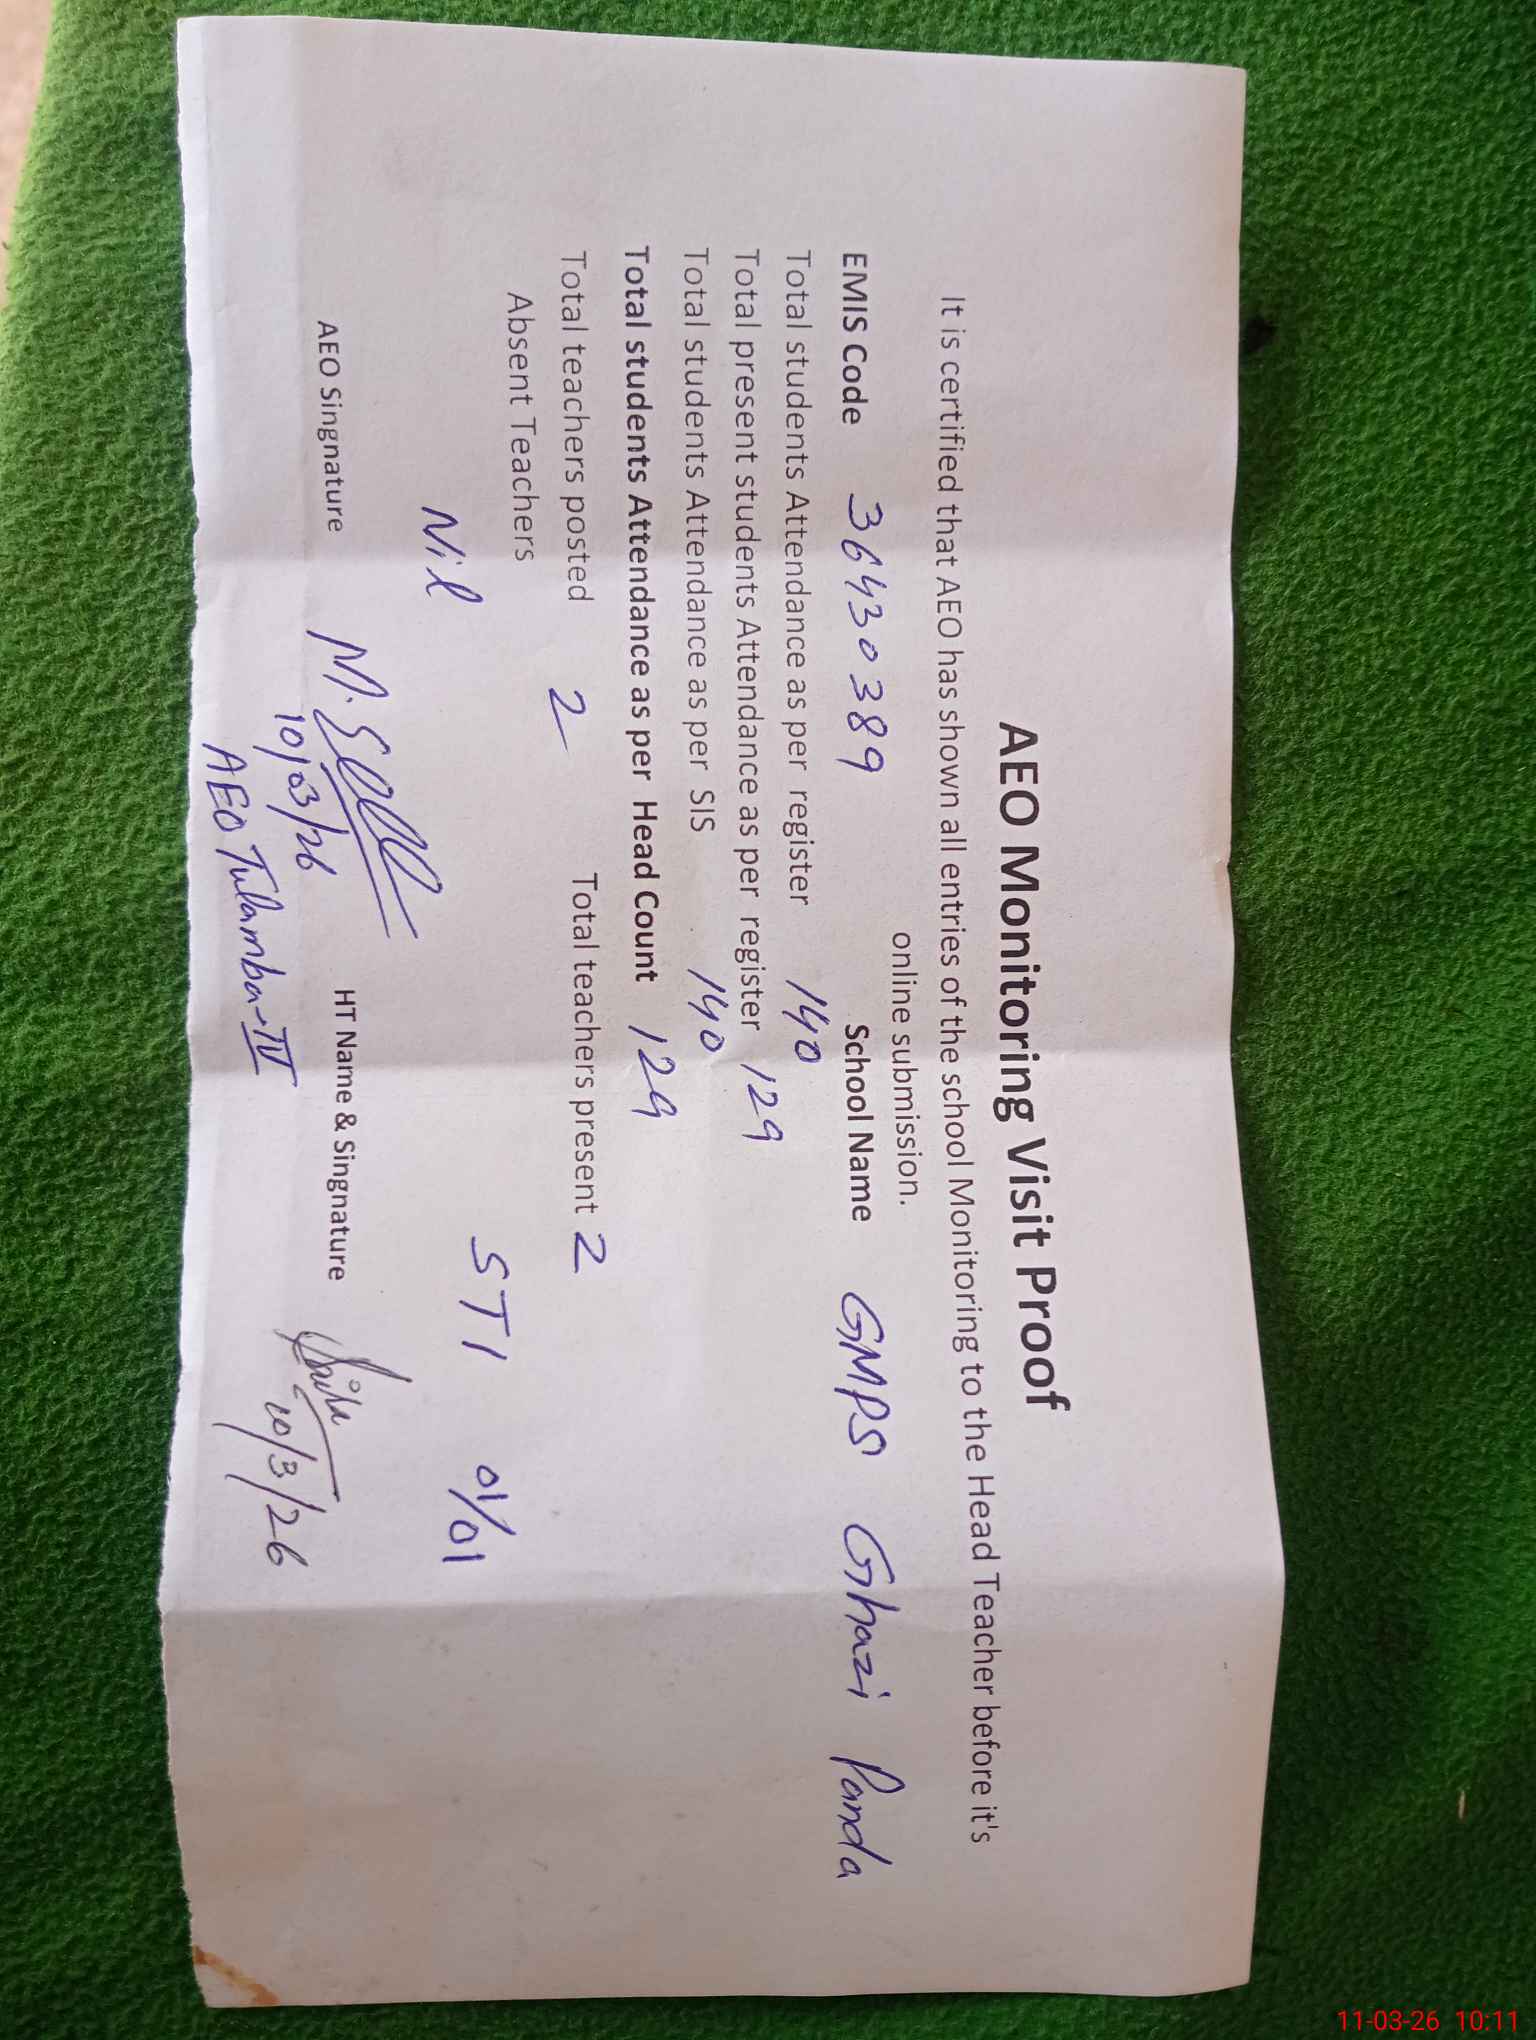 AEO Monitoring Visit Proof
It is certified that AEO has shown all entries of the school Monitoring to the Head Teacher before it's
online submission.
EMIS Code 36430389 School Name GMPS Ghazi Panda
Total students Attendance as per register 140
Total present students Attendance as per register 129
Total students Attendance as per SIS 140
Total students Attendance as per Head Count 129
Total teachers posted 2 Total teachers present 2
Absent Teachers
Nil STI 01/01
AEO Singnature HT Name & Singnature
10/03/26 10/3/26
AEO Tulamba-IV
11-03-26 10:11